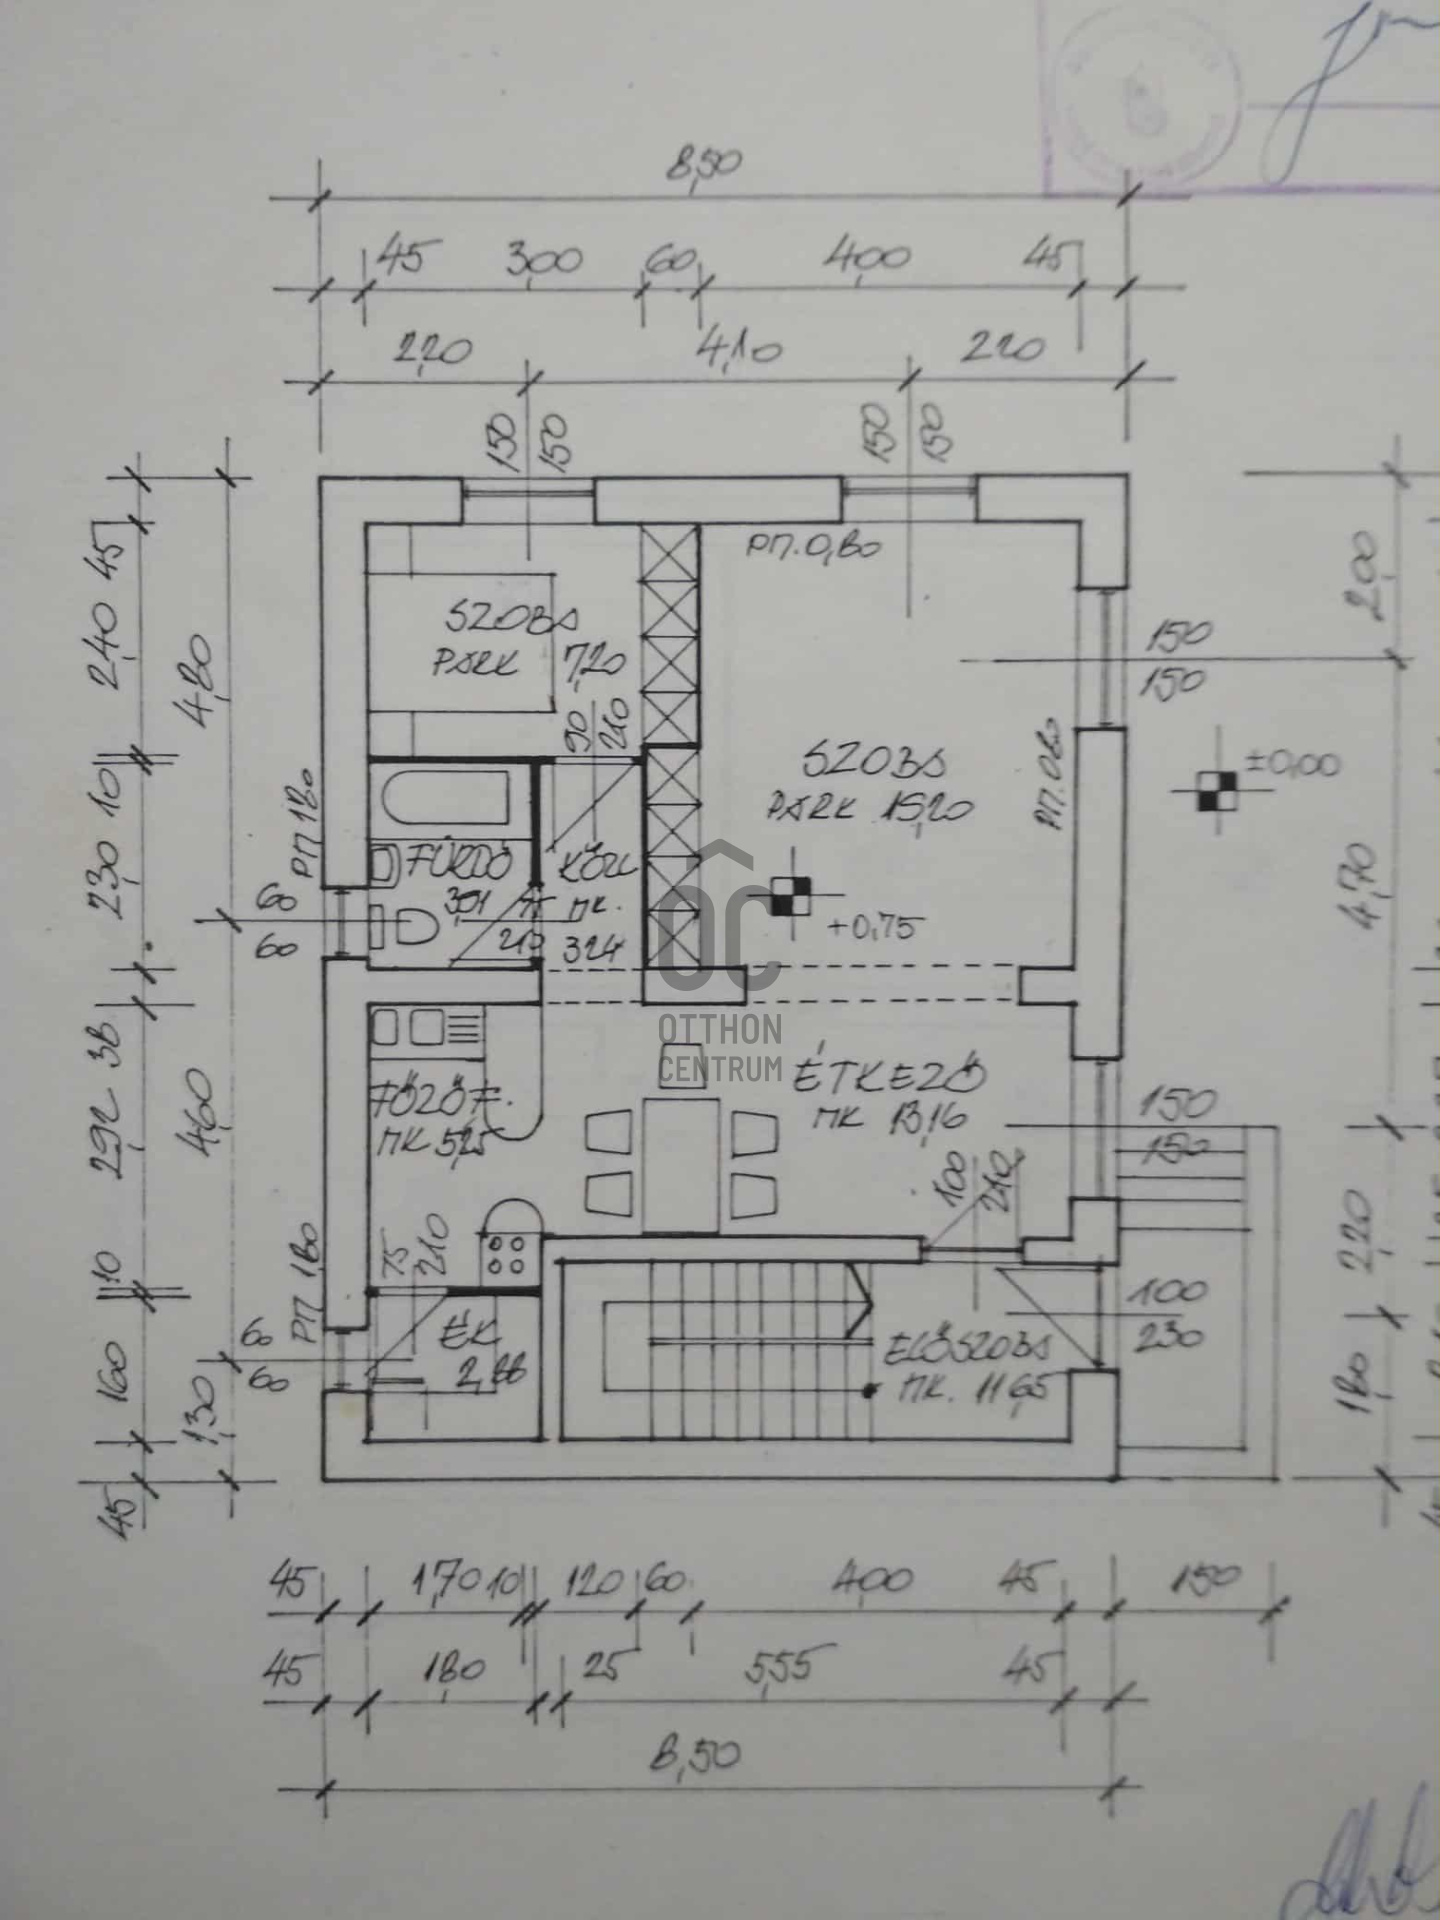 8,50
45 300 60 400 45
2,20 4,10 220
150 150 150 150
РП. 0,80
SZOBA
PARK 7,20
90 210
45
240
10
230
38
292
10
160
45
4,80
4,60
1,30
РП 1,80
60
60
FÜRDŐ
3,01
75
210
KÖZL
MK.
3,24
SZOBA
PARK 15,20
РП. 0,80
+0,75
±0,00
150
150
200
4,70
220
180
OC
OTTHON
CENTRUM
FŐZŐF.
MK 5,25
ÉTKEZŐ
MK 13,16
100 210
150
150
75 210
РП 1,80
60
60
ÉK
2,88
ELŐSZOBA
MK. 11,65
100
230
45 1,70 10 120 60 400 45 150
45 180 25 5,55 45
8,50